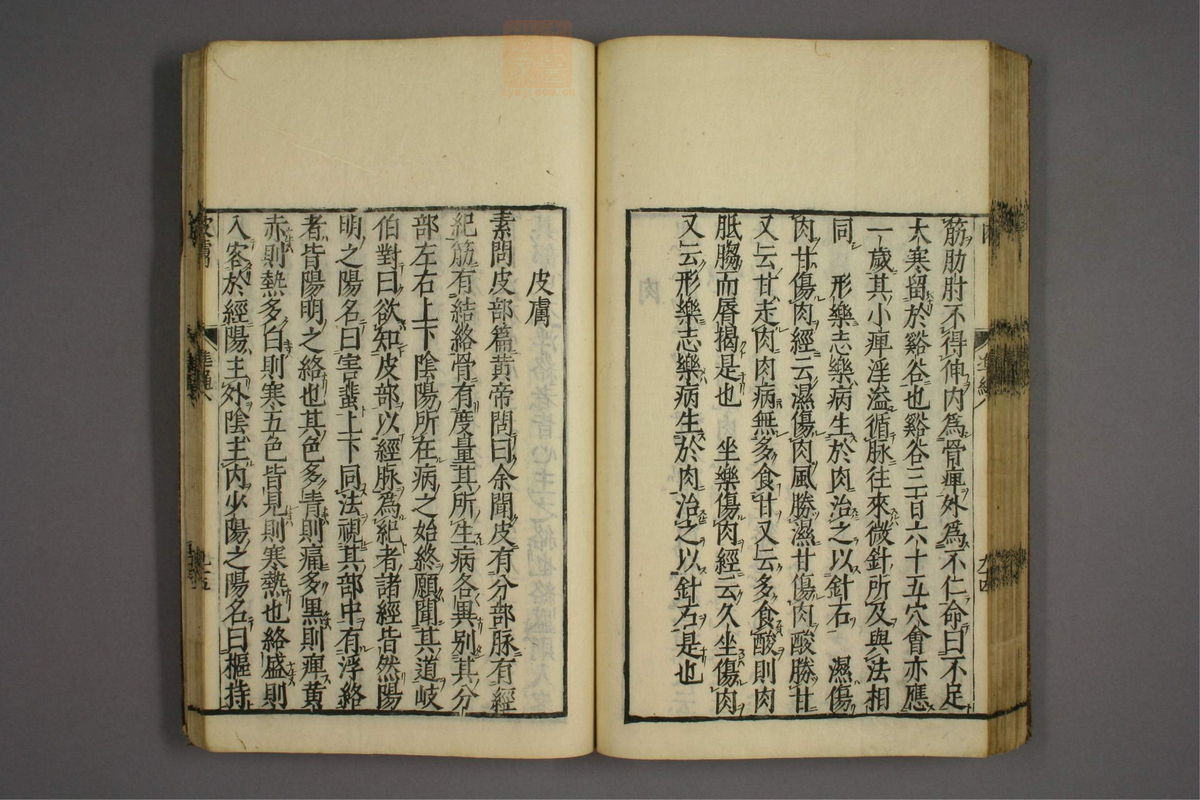 筋肋肘不得伸内爲骨痺外爲不仁命曰不足
大寒留於谿谷也谿谷三百六十五穴會亦應
一歲其小痺淫溢循脉往來微針所及與法相
同 形樂志樂病生於肉治之以針石 濕傷
肉甘傷肉經云濕傷肉風勝濕甘傷肉酸勝甘
又云甘走肉肉病無多食甘又云多食酸則肉
胝䐢而唇揭是也 坐樂傷肉經云久坐傷肉
又云形樂志樂病生於肉治之以針石是也
皮膚
素問皮部篇黃帝問曰余聞皮有分部脉有經
紀筋有結絡骨有度量其所生病各異别其分
部左右上下陰陽所在病之始終願聞其道岐
伯對曰欲知皮部以經脉爲紀者諸經皆然陽
明之陽名曰害蜚上下同法視其部中有浮絡
者皆陽明之絡也其色多青則痛多黑則痺黃
赤則熱多白則寒五色皆見則寒熱也絡盛則
入客於經陽主外陰主内少陽之陽名曰樞持